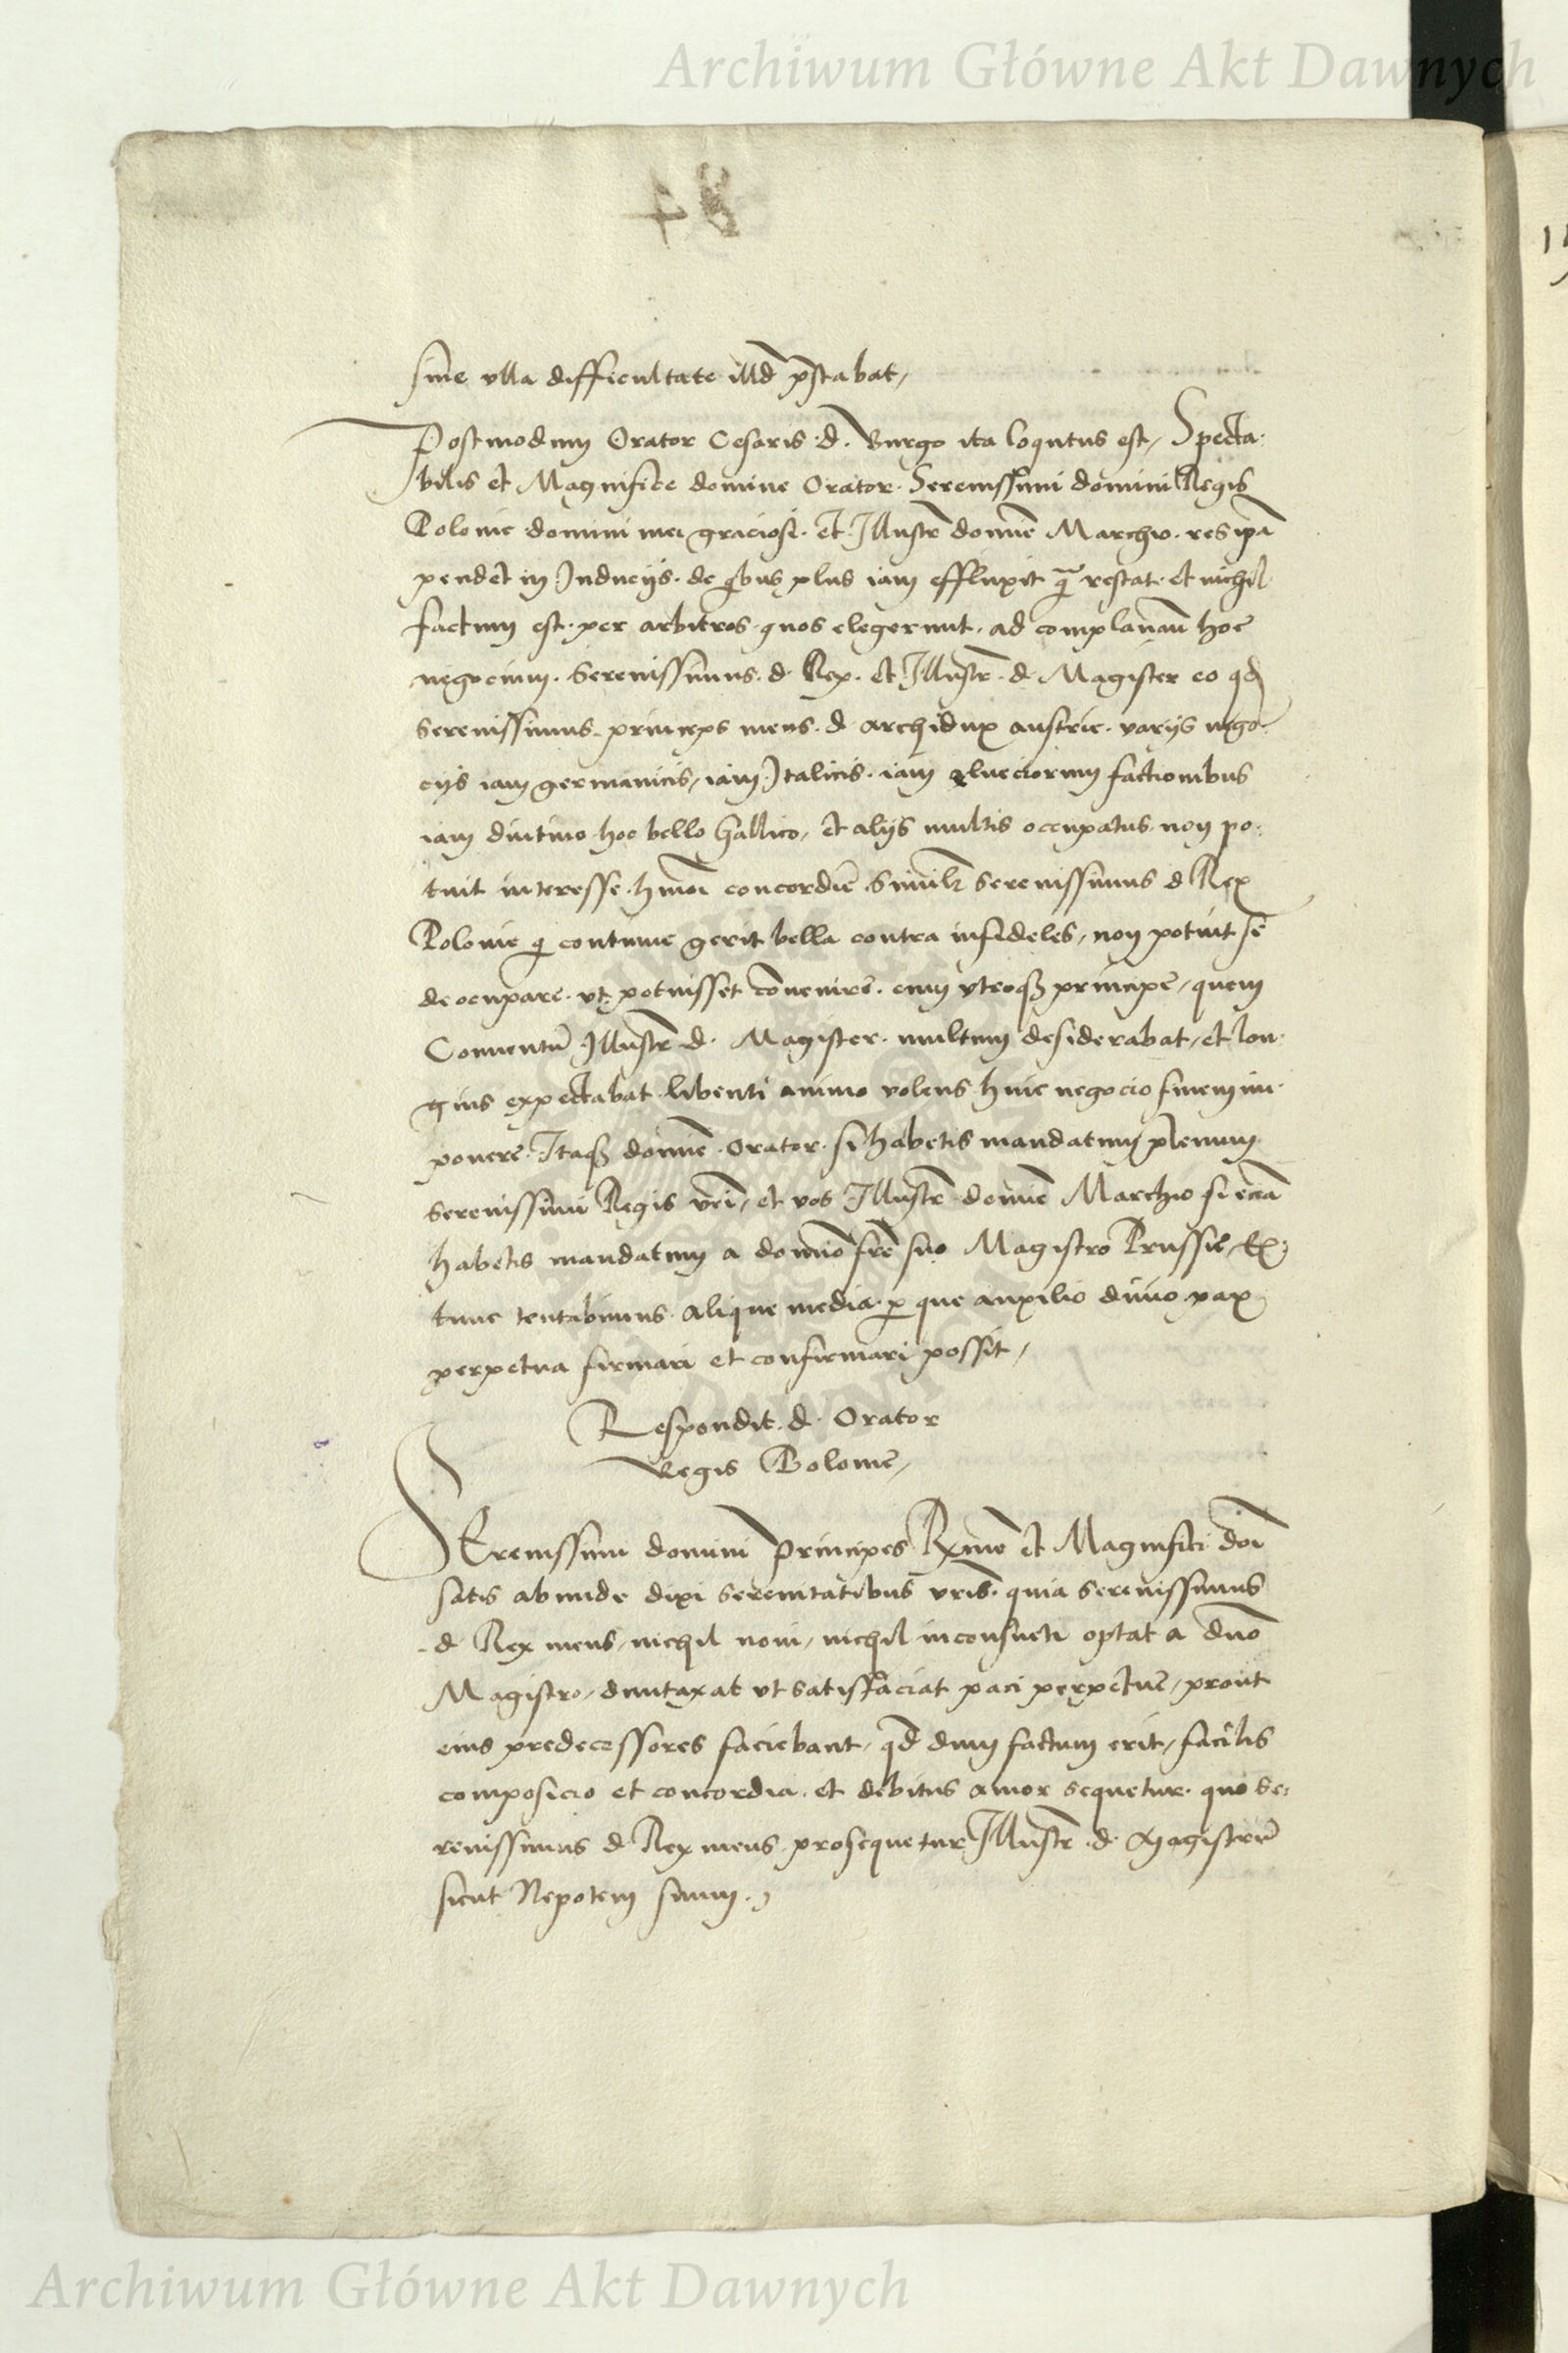 Archiwum Główne Akt Dawnych
sine ulla difficultate illd pstabat,
Postmodum Orator Cesaris d. Burgo ita loqutus est, Specta-
bilis et Magnifice domine Orator Serenissimi domini Regis
Polonie domini mei graciosi. et Illustr domine Marchio. res ipa
pendet in Induciis. de qbus plus iam effluxit q restat. et nichil
factum est. per arbitros. quos elegerunt. ad complanau hoc
negocium. Serenissimus. d. Rex. et Illustr. d. Magister eo qd
Serenissimus princeps meus. d. archidux austrie. variis nego-
ciis iam germanicis, iam Italicis. iam elueciorum factionibus
iam diutino hoc bello Gallico, et aliis multis occupatus non po-
tuit interesse hmoi concordie Simil Serenissimus d Rex
Polonie q continue gerit bella contra infideles, non potuit se
deocupare. ut potuisset convenire. cum utroq principe, quem
Conventu Illustr d. Magister. multum desiderabat, et lon-
gius expectabat libenti animo volens huic negocio finem im-
ponere. Itaq domine Orator. si habetis mandatum plenum
Serenissimi Regis vri, et vos Illustr domine Marchio si ecia
habetis mandatum a domino fre suo Magistro Prussie
tunc tentabimus aliqua media. p que auxilio divino pax
perpetua firmari et confirmari possit,
Respondit. d. Orator
Regis Polonie,
SErenissimi domini principes Rxme et Magnifici doi
satis abunde dixi serenitatibus vris. quia Serenissimus
d Rex meus, nichil novi, nichil inconsueti optat a dno
Magistro, dumtaxat ut satisfaciat paci perpetue, prout
eius predecessores faciebant, qd dum factum erit, facilis
composicio et concordia. et debitus amor sequetur. quo Se-
renissimus d Rex meus prosequetur Illustr. d. Magistru
sicut Nepotem suum.
Archiwum Główne Akt Dawnych